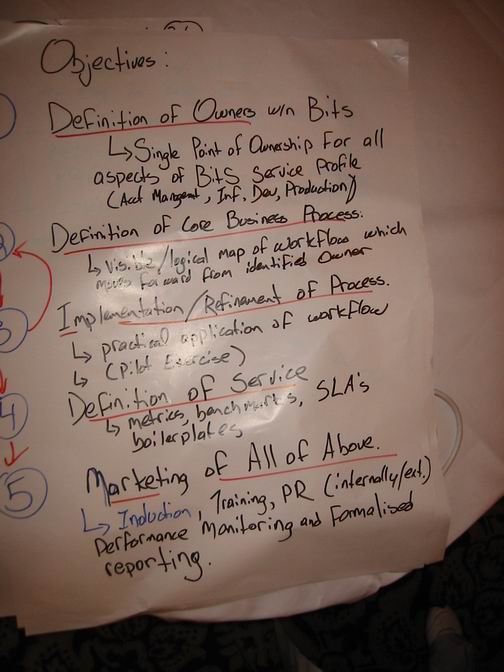 Objectives:
Definition of Owners w/n Bits
↳ Single Point of Ownership for all
aspects of BitS Service Profile
(Acct Managemt, Inf, Dev, Production)
2
Definition of Core Business Process.
↳ visible/logical map of workflow which
moves forward from identified Owner
3
Implementation/Refinement of Process.
↳ practical application of workflow
↳ (Pilot Exercise)
4
Definition of Service
↳ metrics, benchmarks, SLA's
boilerplates
5
Marketing of All of Above.
↳ Induction, Training, PR (internally/ext.)
Performance Monitoring and Formalised
reporting.